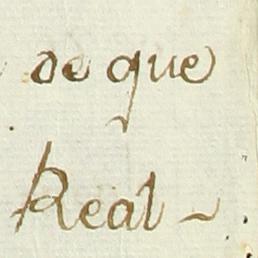 de que
Real ~